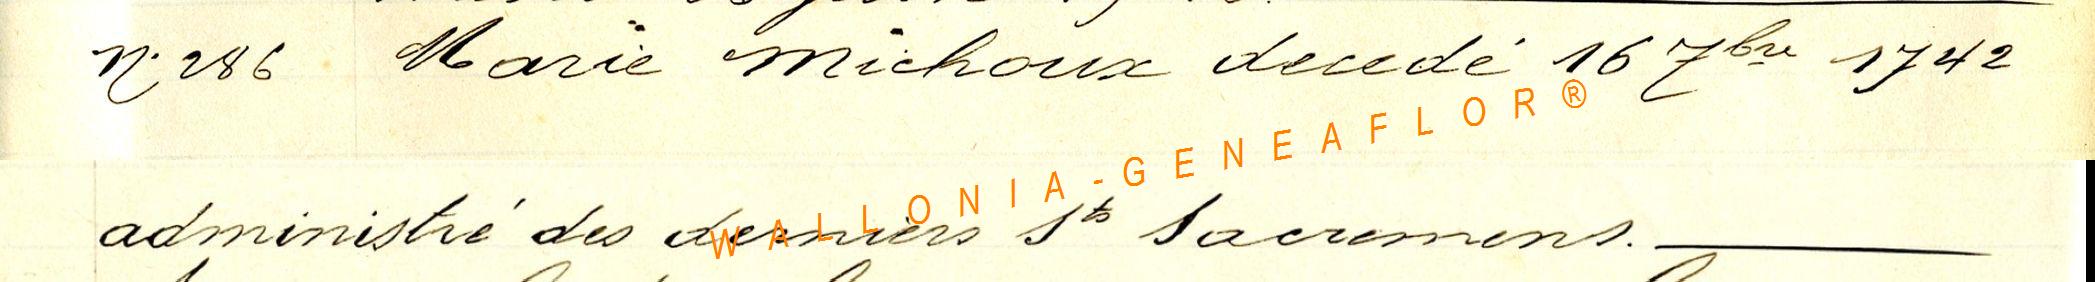 N° 286 Marie Michoux decedé 16 7bre 1742
WALLONIA-GENEAFLOR®
administré des derniers Sts Sacremens.